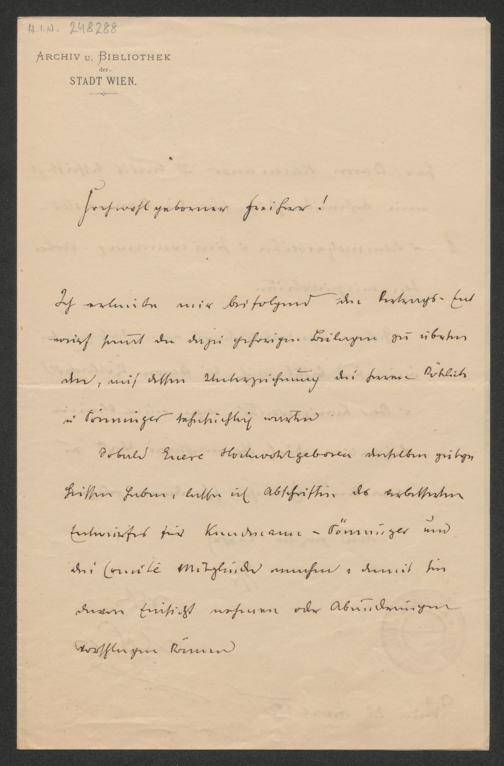 H.I.N. 248288
ARCHIV U. BIBLIOTHEK
der
STADT WIEN.
Hochwohlgeborner Freiherr!
Ich erlaube mir beifolgend den Vertrags-Ent
wurf samt den dazu gehörigen Beilagen zu übersen
den, auf dessen Unterzeichnung die Herren
u Pönninger sehnsüchtig warten
Sobald Euere Hochwohlgeboren denselben gutge
heissen haben, lasse ich Abschriften des verbesserten
Entwurfes für Kundmann - Pönninger und
die Comité Mitglieder machen, damit sie
davon Einsicht nehmen oder Abänderungen
vorschlagen können